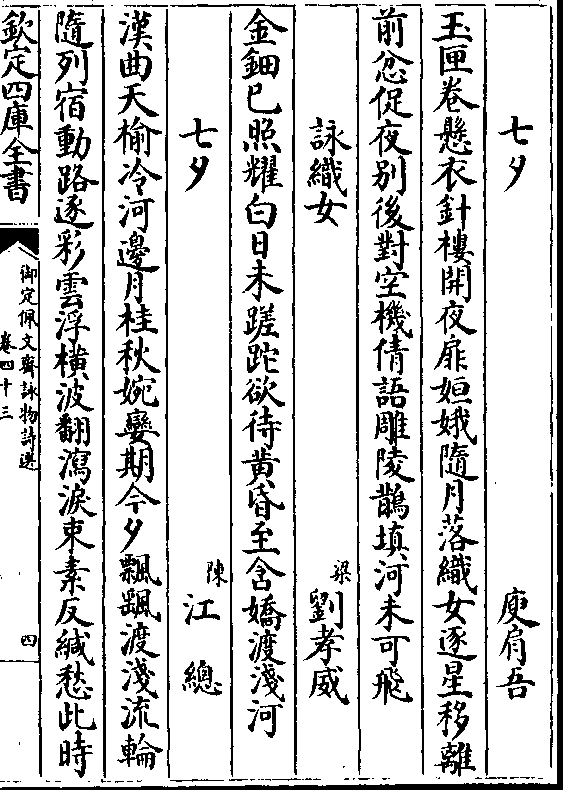 七夕　庾肩吾
玉匣卷懸衣針樓開夜扉姮娥隨月落織女逐星移離
前忿促夜別後對空機倩語雕陵鵲填河未可飛
詠織女　梁劉孝威
金鈿已照耀白日未蹉跎欲待黄昏至含嬌渡淺河
七夕　陳江總
漢曲天榆冷河邊月桂秋婉孌期今夕飄颻渡淺流輪
隨列宿動路逐彩雲浮横波翻瀉淚束素反緘愁此時
欽定四庫全書
御定佩文齋詠物詩選
卷四十三
四